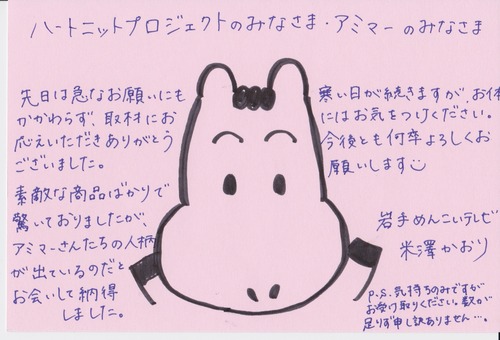 ハートニットプロジェクトのみなさま・アミマーのみなさま
先日は急なお願いにも
かかわらず、取材にお
応えいただきありがとう
ございました。
素敵な商品ばかりで
驚いておりましたが、
アミマーさんたちの人柄
が出ているのだと
お会いして納得
しました。
寒い日が続きますが、お体
にはお気をつけください。
今後とも何卒よろしくお
願いします
岩手めんこいテレビ
米澤かおり
P.S.気持ちのみですが
お受け取りください。数が
足りず申し訳ありません…。